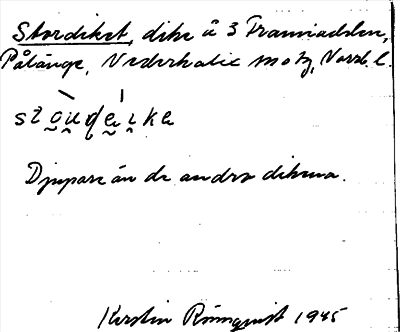 Stordiket, dike å 3 Framnäddlen,
Pålänge, Nederkalix motz, Norrb. l.
stou̯deike
Djupare än de andra dikena.
Kerstin Rönnquist 1945